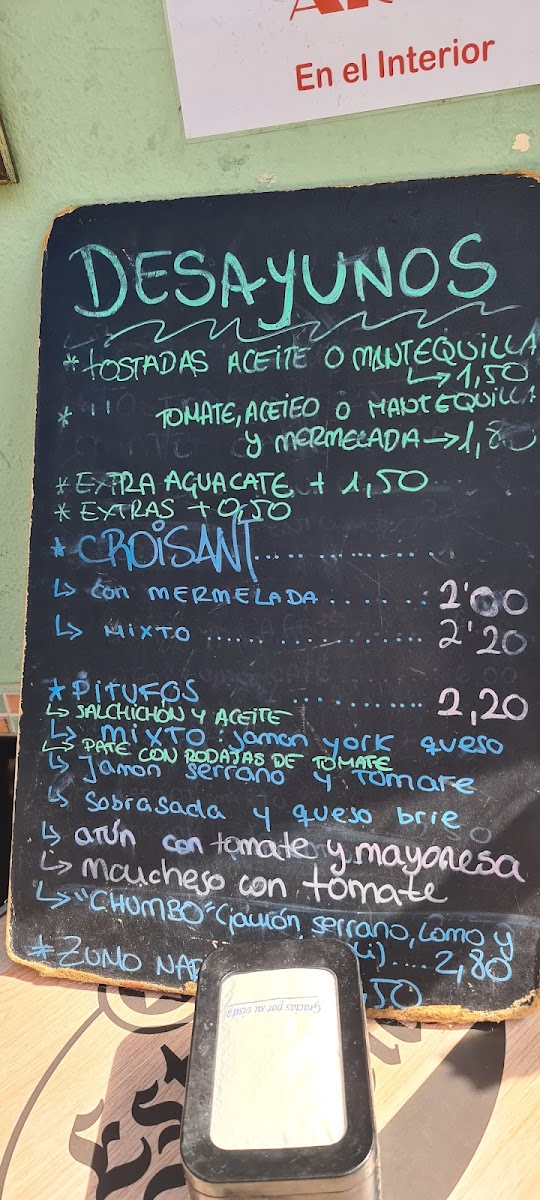 En el Interior
DESAYUNOS
* TOSTADAS ACEITE O MANTEQUILLA
↳ 1,50
* '' TOMATE, ACEIEO O MANTEQUILLA
Y MERMELADA → 1,80
* EXTRA AGUACATE + 1,50
* EXTRAS + 0,50
* CROISANT..................
↳ con MERMELADA ....... 2'00
↳ MIXTO .................... 2'20
* PITUFOS ............ 2,20
↳ SALCHICHÓN Y ACEITE
↳ MIXTO: jamon york queso
↳ PATE CON RODAJAS DE TOMATE
↳ Jamon serrano y TOMATE
↳ sobrasada y queso brie
↳ atún con tomate y mayonesa
↳ manchego con tomate
↳ "CHUMBO" (jamón serrano, Lomo y
li).... 2,80
* ZUMO NA
,50
Gracias por su visita